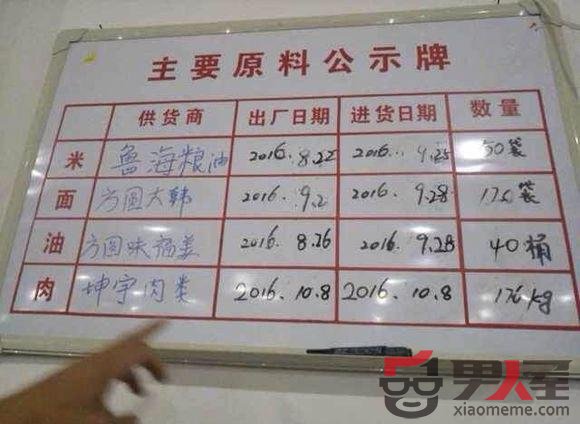 主要原料公示牌
供货商 出厂日期 进货日期 数量
米 鲁海粮油 2016.8.22 2016.9.25 50袋
面 方圆大韩 2016.9.2 2016.9.28 袋
油 方圆味福美 2016.8.26 2016.9.28 40桶
肉 坤宇肉类 2016.10.8 2016.10.8 176kg
男人窝
xiaomeme.com